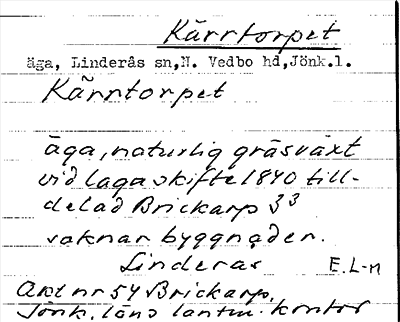 Kärrtorpet
äga, Linderås sn,N. Vedbo hd,Jönk.l.
Kärrtorpet
äga, naturlig gräsväxt
vid laga skifte 1840 till-
delad Brickarp 3³
saknar byggnader.
Linderas E.L-n
Akt nr 54 Brickarp,
Jönk. läns lantm. kontor